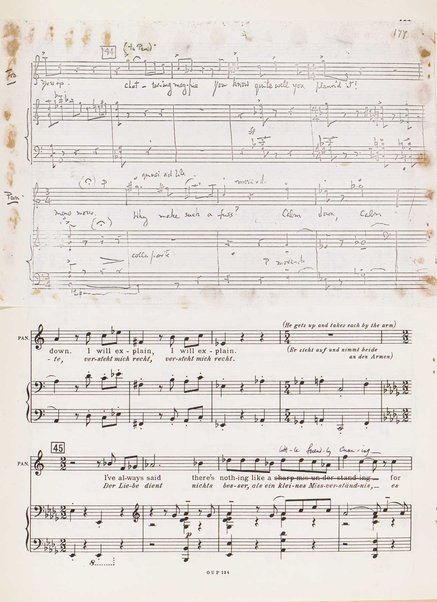 177
44 (to Pand)
chat - tering mag-pie You know quite well you plann'd it!
Pan
quasi ad lib
Why make such a fuss? Calm down, Calm
colla parte
P
(He gets up and takes each by the arm)
PAN.
down. I will ex - plain, I will ex - plain.
(Er steht auf und nimmt beide
- te, ver-steht mich recht, ver-steht mich recht.
an den Armen)
45
PAN.
I've al-ways said there's noth-ing like a sharp mis-un-der-stand-ing for
Der Lie-be dient nichts bes-ser, als ein klei-nes Miss-ver-ständ-nis, es
p
8
O U P 124